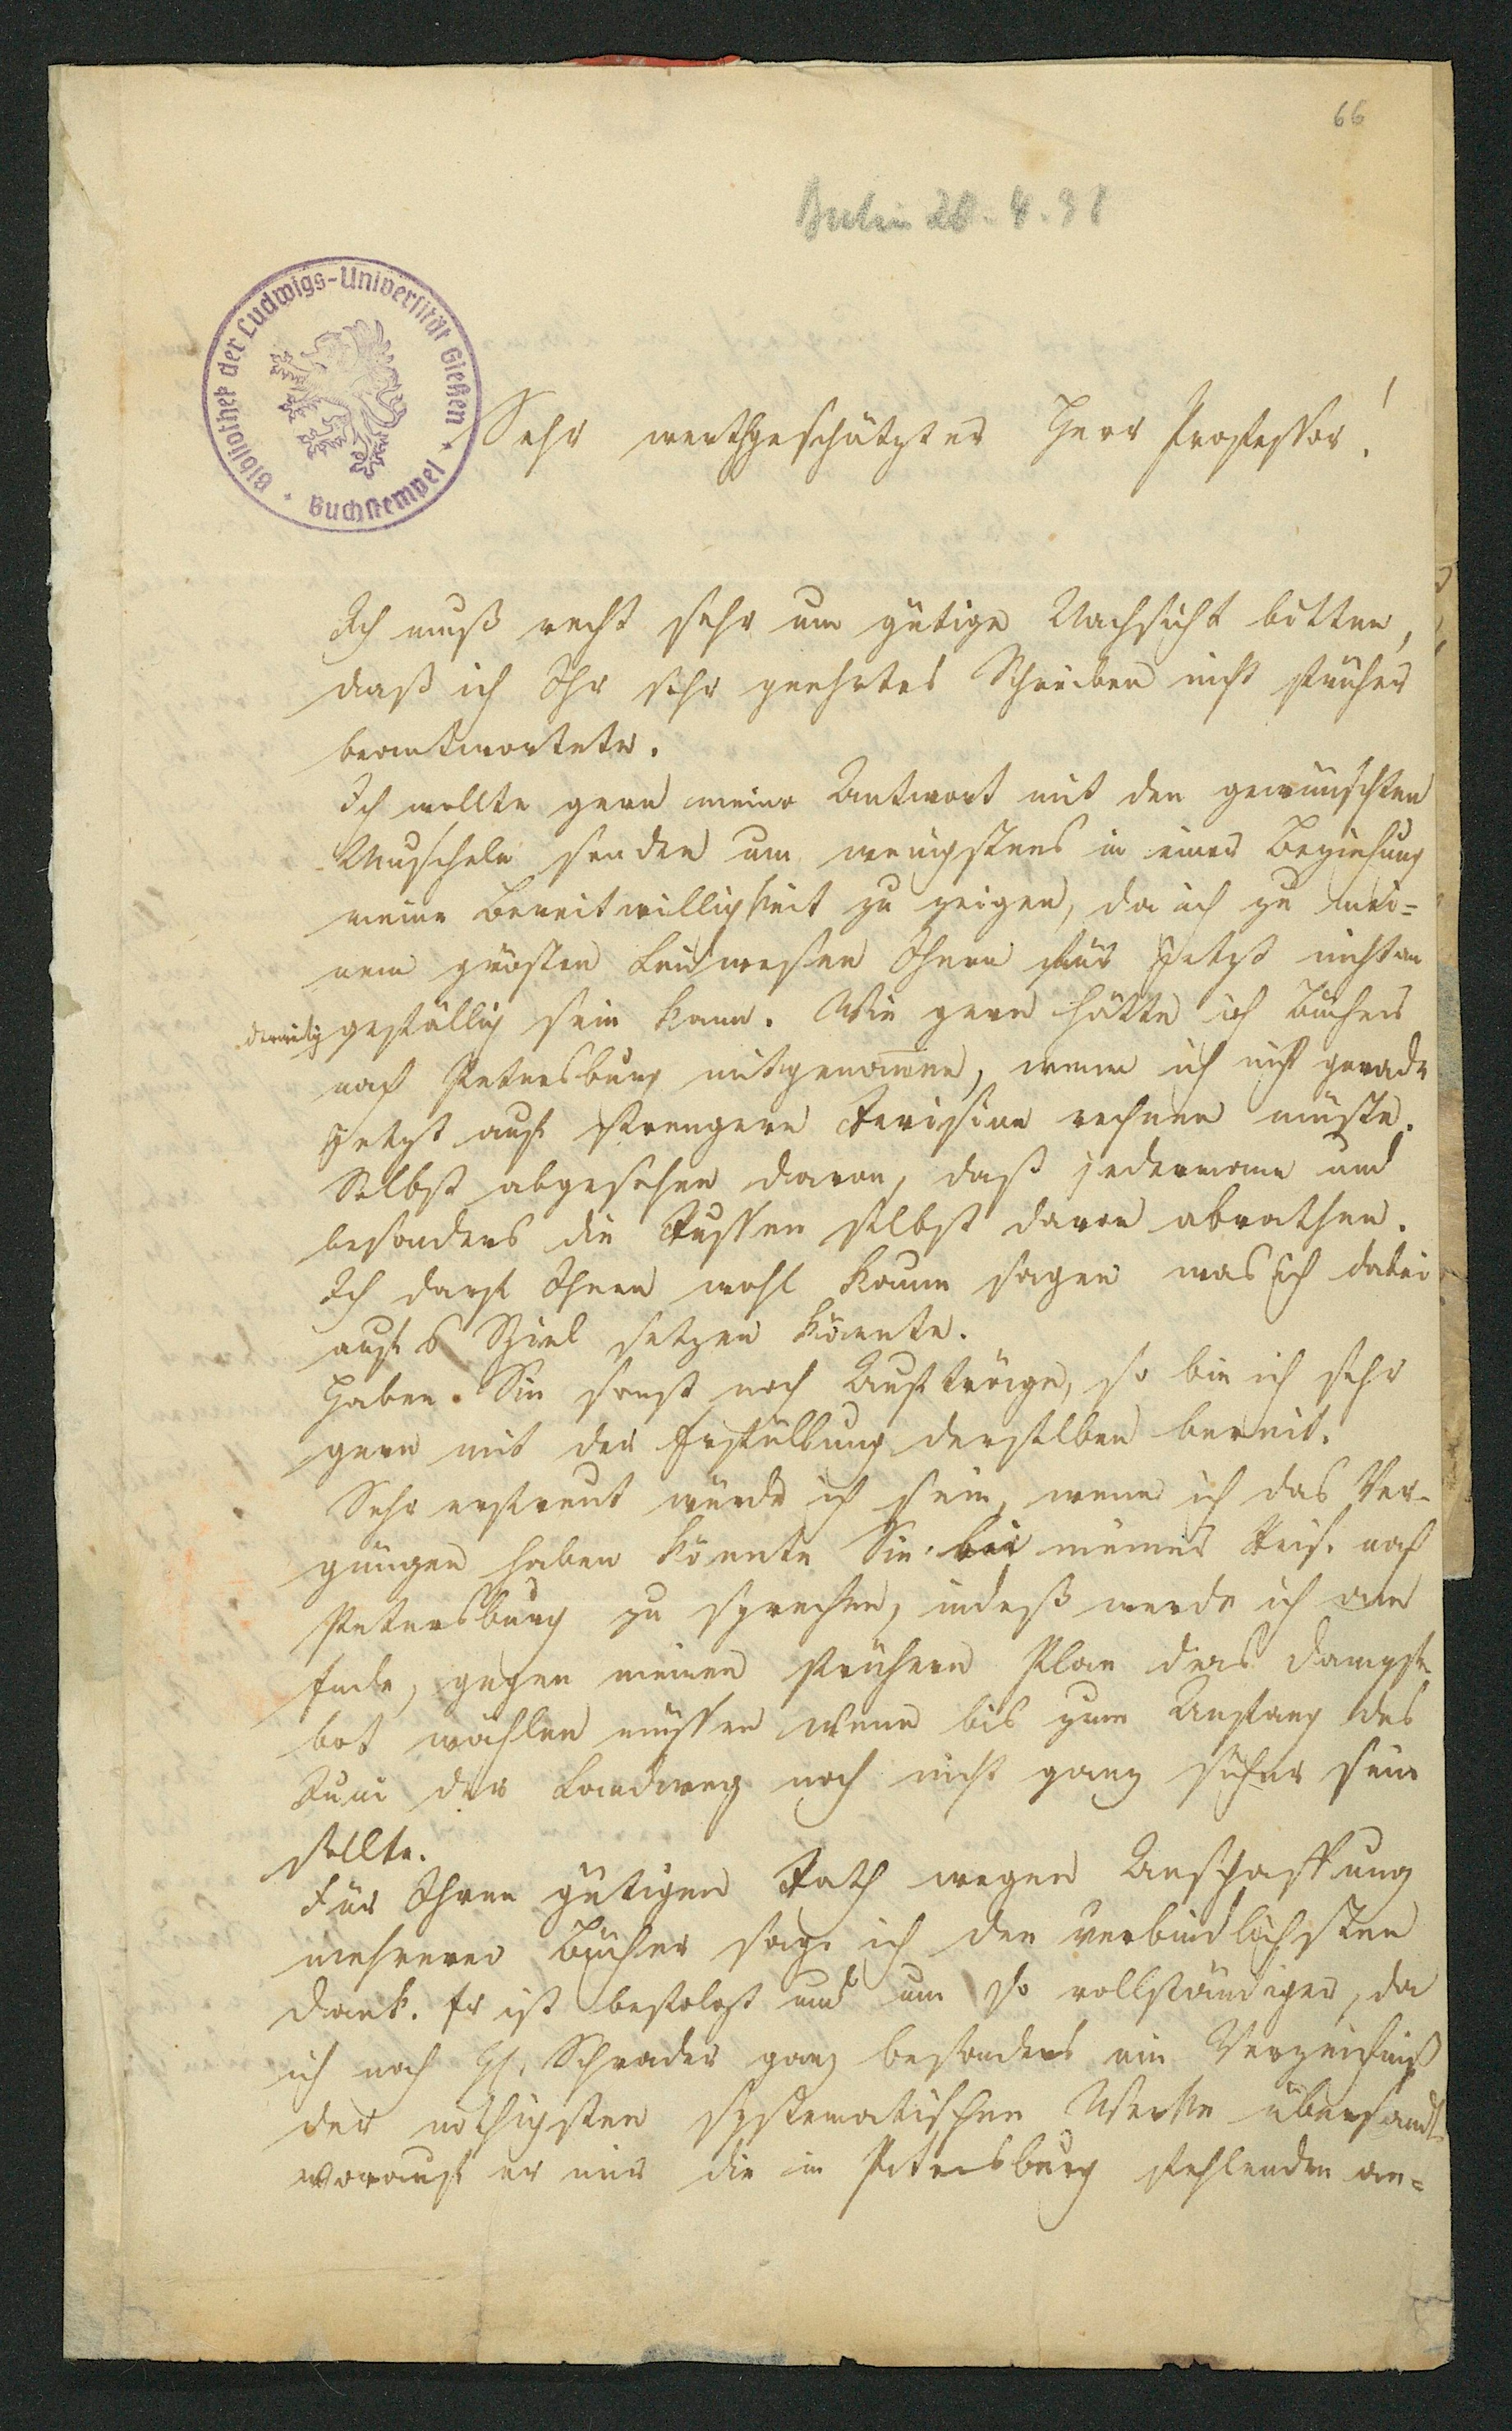 66
Berlin 28. 4. 31
Bibliothek der Ludwigs-Universität Gießen
Buchstempel
Sehr werthgeschätzter Herr Professor!
Ich muß recht sehr um gütige Nachsicht bitten,
daß ich Ihr sehr geehrtes Schreiben nicht früher
beantwortete.
Ich wollte gern meine Antwort mit den gewünschten
Muscheln senden um wenigstens in einer Beziehung
meine Bereitwilligkeit zu zeigen, da ich zu mei=
nem grösten Leidwesen Ihnen für jetzt nicht
gefällig sein kann. Wie gern hätte ich Bücher
nach Petersburg mitgenom̅en, wenn ich nicht gerade
jetzt auf strengere Revision rechnen müste.
Selbst abgesehen davon, daß jedermann und
besonders die Russen selbst davon abrathen.
Ich darf Ihnen wohl kaum sagen was ich dabei
auf's Spiel setzen könnte.
Haben Sie sonst noch Aufträge, so bin ich sehr
gern mit der Erfüllung derselben bereit.
Sehr erfreut würde ich sein, wenn ich das Ver-
gnügen haben könnte Sie bei meiner Reise nach
Petersburg zu sprechen, indeß werde ich am
Ende, gegen meinen frühern Plan das Dampf-
bot wählen müssen wenn bis zum Anfang des
Juni der Landweg noch nicht ganz sicher sein
sollte.
Für Ihren gütigen Rath wegen Anschaffung
mehrerer Bücher sage ich den verbindlichsten
Dank. Er ist befolgt und um so vollständiger, da
ich noch H. Schrader ganz besonders ein Verzeichniß
der nöthigsten systematischen Werke übersandte
worauf er mir die in Petersburg fehlenden an=